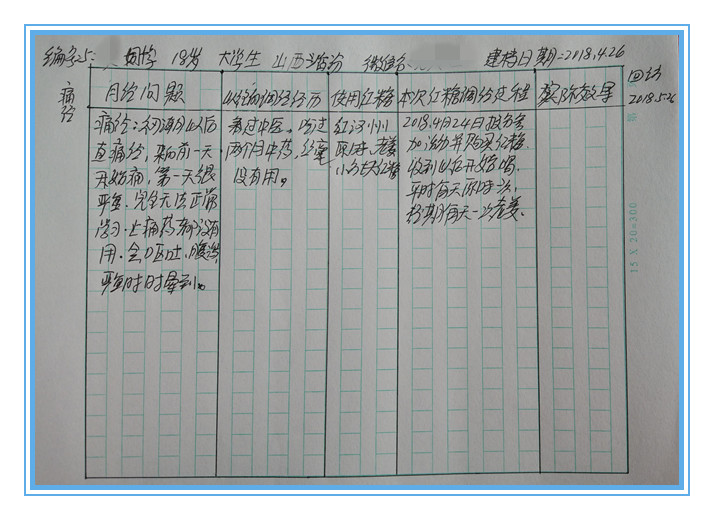 编号25: 同学 18岁 大学生 山西 微信名 建档日期=2018.4.26
痛经
回访
2018.5.26
月经问题
痛经:初潮以后
直痛经,来前一天
开始痛,第一天很
严重.完全无法正常
学习.止痛药都没有
用.会呕吐、腹泻,
严重时晕到。
以往的调经经历
看过中医。喝过
两个月中药,
没有用。
使用红糖
老姜
本次红糖调经过程
2018.4月24日报名参
加活动并购买红糖.
收到以后开始喝.
平时每天
经期每天一次老姜.
实际效果
15 X 20=300